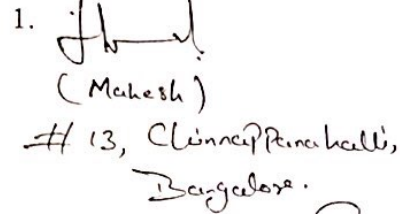 1.
(Mahesh)
# 13, Chinnappanahalli,
Bangalore.